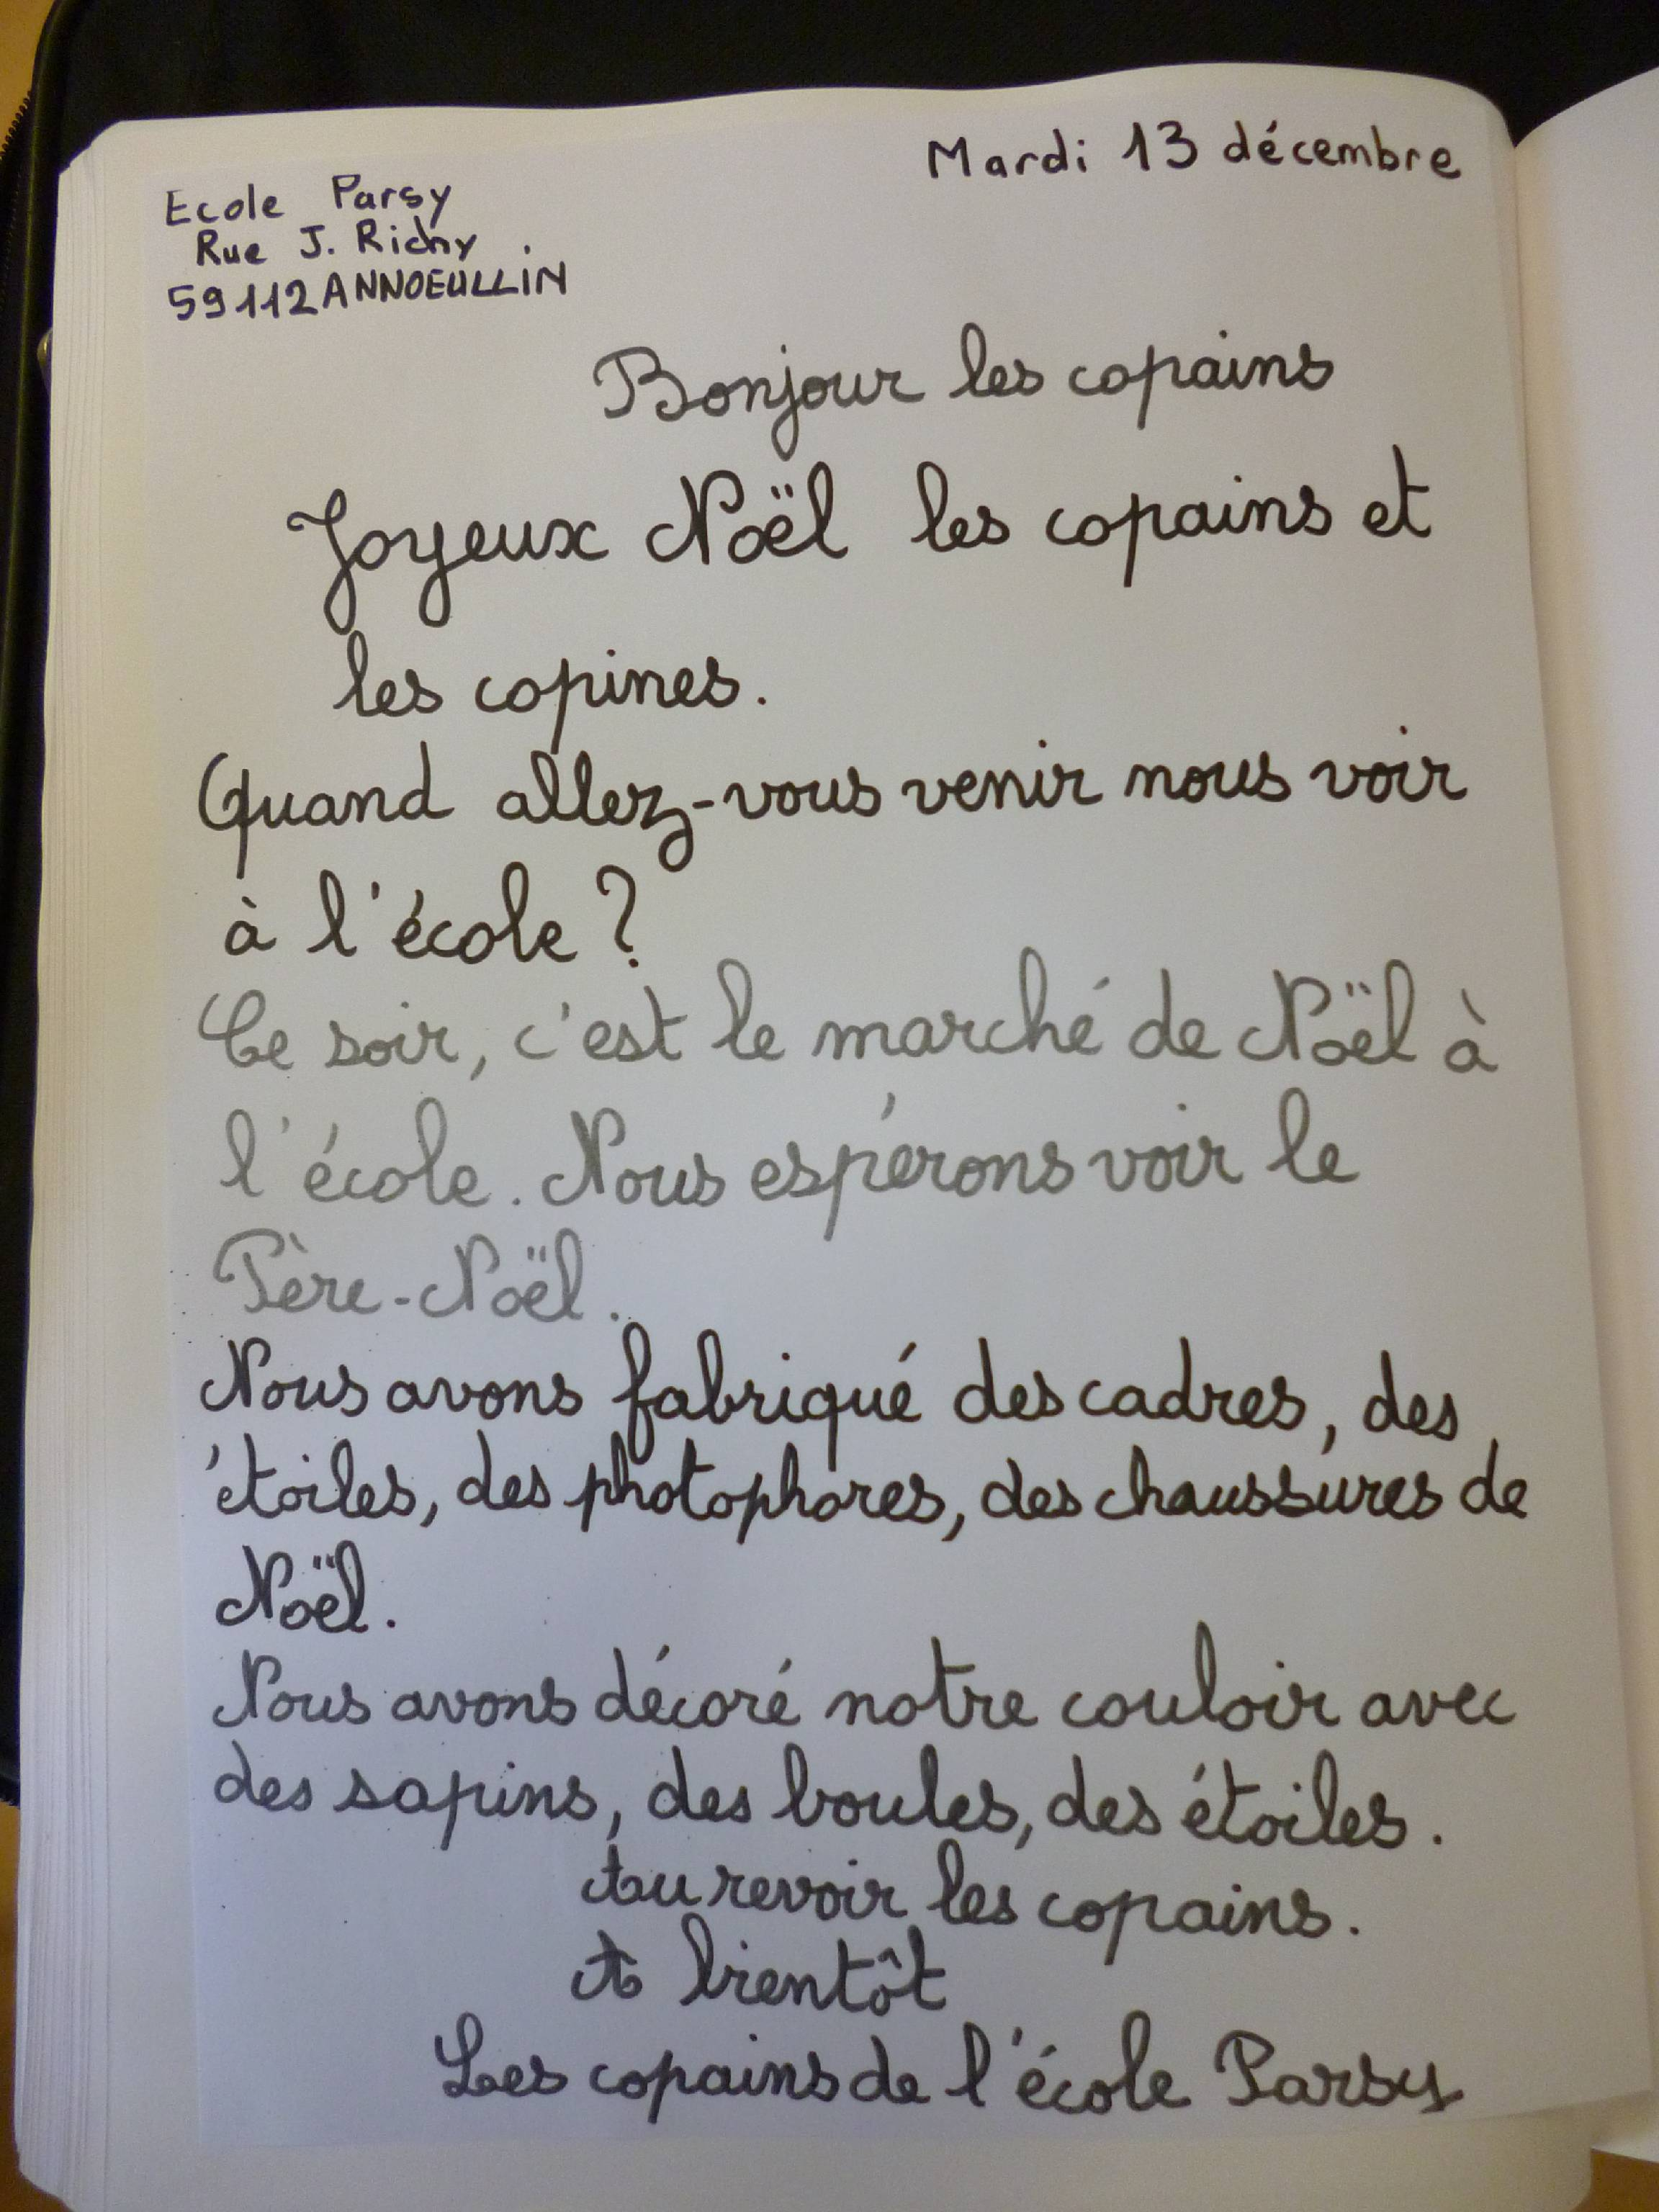 Mardi 13 décembre
Ecole Parsy
Rue J. Richy
59112 ANNOEULLIN
Bonjour les copains
Joyeux Noël les copains et
les copines.
Quand allez-vous venir nous voir
à l'école ?
Ce soir, c'est le marché de Noël à
l'école. Nous espérons voir le
Père-Noël.
Nous avons fabriqué des cadres, des
étoiles, des photophores, des chaussures de
Noël.
Nous avons décoré notre couloir avec
des sapins, des boules, des étoiles.
Au revoir les copains.
A bientôt
Les copains de l'école Parsy